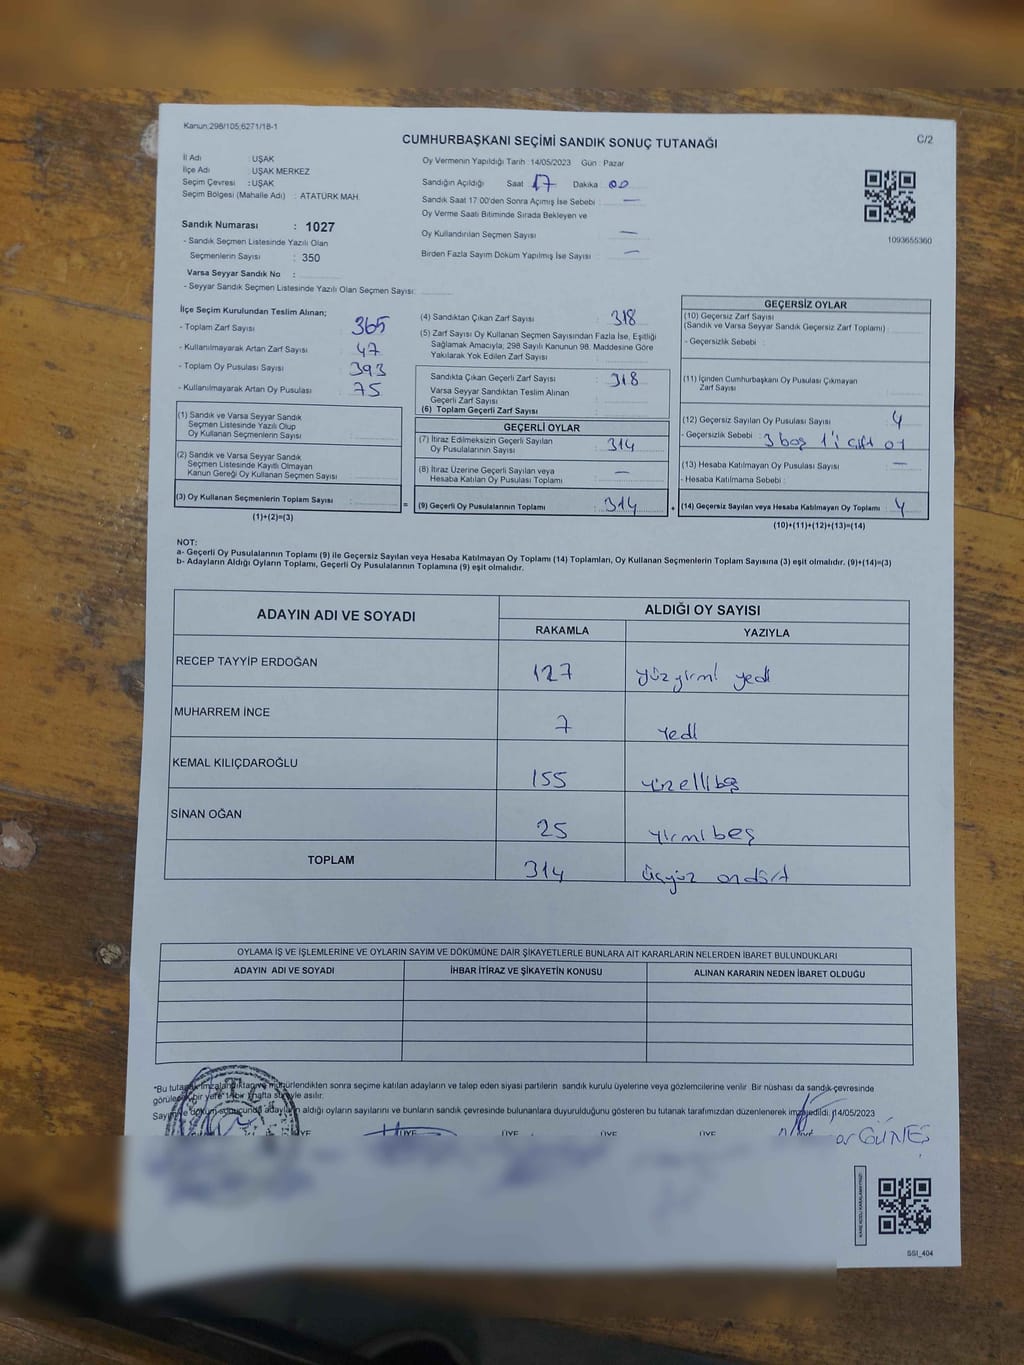 Kanun:298/105;6271/18-1
CUMHURBAŞKANI SEÇİMİ SANDIK SONUÇ TUTANAĞI
C/2
İl Adı : UŞAK
İlçe Adı : UŞAK MERKEZ
Seçim Çevresi : UŞAK
Seçim Bölgesi (Mahalle Adı) : ATATÜRK MAH.
Sandık Numarası : 1027
- Sandık Seçmen Listesinde Yazılı Olan
Seçmenlerin Sayısı : 350
Varsa Seyyar Sandık No :
- Seyyar Sandık Seçmen Listesinde Yazılı Olan Seçmen Sayısı:
Oy Vermenin Yapıldığı Tarih :14/05/2023 Gün : Pazar
Sandığın Açıldığı Saat 17 Dakika 00
Sandık Saat 17.00'den Sonra Açımış İse Sebebi : —
Oy Verme Saati Bitiminde Sırada Bekleyen ve
Oy Kullandırılan Seçmen Sayısı —
Birden Fazla Sayım Döküm Yapılmış İse Sayısı : —
1093655360
İlçe Seçim Kurulundan Teslim Alınan;
- Toplam Zarf Sayısı : 365
- Kullanılmayarak Artan Zarf Sayısı : 47
- Toplam Oy Pusulası Sayısı : 393
- Kullanılmayarak Artan Oy Pusulası : 75
(1) Sandık ve Varsa Seyyar Sandık
Seçmen Listesinde Yazılı Olup
Oy Kullanan Seçmenlerin Sayısı :
(2) Sandık ve Varsa Seyyar Sandık
Seçmen Listesinde Kayıtlı Olmayan
Kanun Gereği Oy Kullanan Seçmen Sayısı :
(3) Oy Kullanan Seçmenlerin Toplam Sayısı :
(1)+(2)=(3)
(4) Sandıktan Çıkan Zarf Sayısı : 318
(5) Zarf Sayısı Oy Kullanan Seçmen Sayısından Fazla İse, Eşitliği
Sağlamak Amacıyla, 298 Sayılı Kanunun 98. Maddesine Göre
Yakılarak Yok Edilen Zarf Sayısı :
Sandıkta Çıkan Geçerli Zarf Sayısı : 318
Varsa Seyyar Sandıktan Teslim Alınan
Geçerli Zarf Sayısı :
(6) Toplam Geçerli Zarf Sayısı :
GEÇERLİ OYLAR
(7) İtiraz Edilmeksizin Geçerli Sayılan
Oy Pusulalarının Sayısı : 314
(8) İtiraz Üzerine Geçerli Sayılan veya
Hesaba Katılan Oy Pusulası Toplamı : —
= (9) Geçerli Oy Pusulalarının Toplamı : 314
GEÇERSİZ OYLAR
(10) Geçersiz Zarf Sayısı
(Sandık ve Varsa Seyyar Sandık Geçersiz Zarf Toplamı) :
- Geçersizlik Sebebi :
(11) İçinden Cumhurbaşkanı Oy Pusulası Çıkmayan
Zarf Sayısı :
(12) Geçersiz Sayılan Oy Pusulası Sayısı : 4
- Geçersizlik Sebebi : 3 boş 1'i çift oy
(13) Hesaba Katılmayan Oy Pusulası Sayısı : —
- Hesaba Katılmama Sebebi :
+ (14) Geçersiz Sayılan veya Hesaba Katılmayan Oy Toplamı : 4
(10)+(11)+(12)+(13)=(14)
NOT:
a- Geçerli Oy Pusulalarının Toplamı (9) ile Geçersiz Sayılan veya Hesaba Katılmayan Oy Toplamı (14) Toplamları, Oy Kullanan Seçmenlerin Toplam Sayısına (3) eşit olmalıdır. (9)+(14)=(3)
b- Adayların Aldığı Oyların Toplamı, Geçerli Oy Pusulalarının Toplamına (9) eşit olmalıdır.
ADAYIN ADI VE SOYADI
ALDIĞI OY SAYISI
RAKAMLA YAZIYLA
RECEP TAYYİP ERDOĞAN 127 yüzyirmi yedi
MUHARREM İNCE 7 yedi
KEMAL KILIÇDAROĞLU 155 yüzellibeş
SİNAN OĞAN 25 yirmibeş
TOPLAM 314 üçyüz ondört
OYLAMA İŞ VE İŞLEMLERİNE VE OYLARIN SAYIM VE DÖKÜMÜNE DAİR ŞİKAYETLERLE BUNLARA AİT KARARLARIN NELERDEN İBARET BULUNDUKLARI
ADAYIN ADI VE SOYADI İHBAR İTİRAZ VE ŞİKAYETİN KONUSU ALINAN KARARIN NEDEN İBARET OLDUĞU
"Bu tutanak imzalandıktan ve mühürlendikten sonra seçime katılan adayların ve talep eden siyasi partilerin sandık kurulu üyelerine veya gözlemcilerine verilir. Bir nüshası da sandık çevresinde
görülebilir bir yere 1 bir hafta süreyle asılır.
Sayım ve döküm sonucunda adayların aldığı oyların sayılarını ve bunların sandık çevresinde bulunanlara duyurulduğunu gösteren bu tutanak tarafımızdan düzenlenerek imzalanmıştır. 14/05/2023
ÜYE ÜYE ÜYE ÜYE
GÜNEŞ
SSİ_404